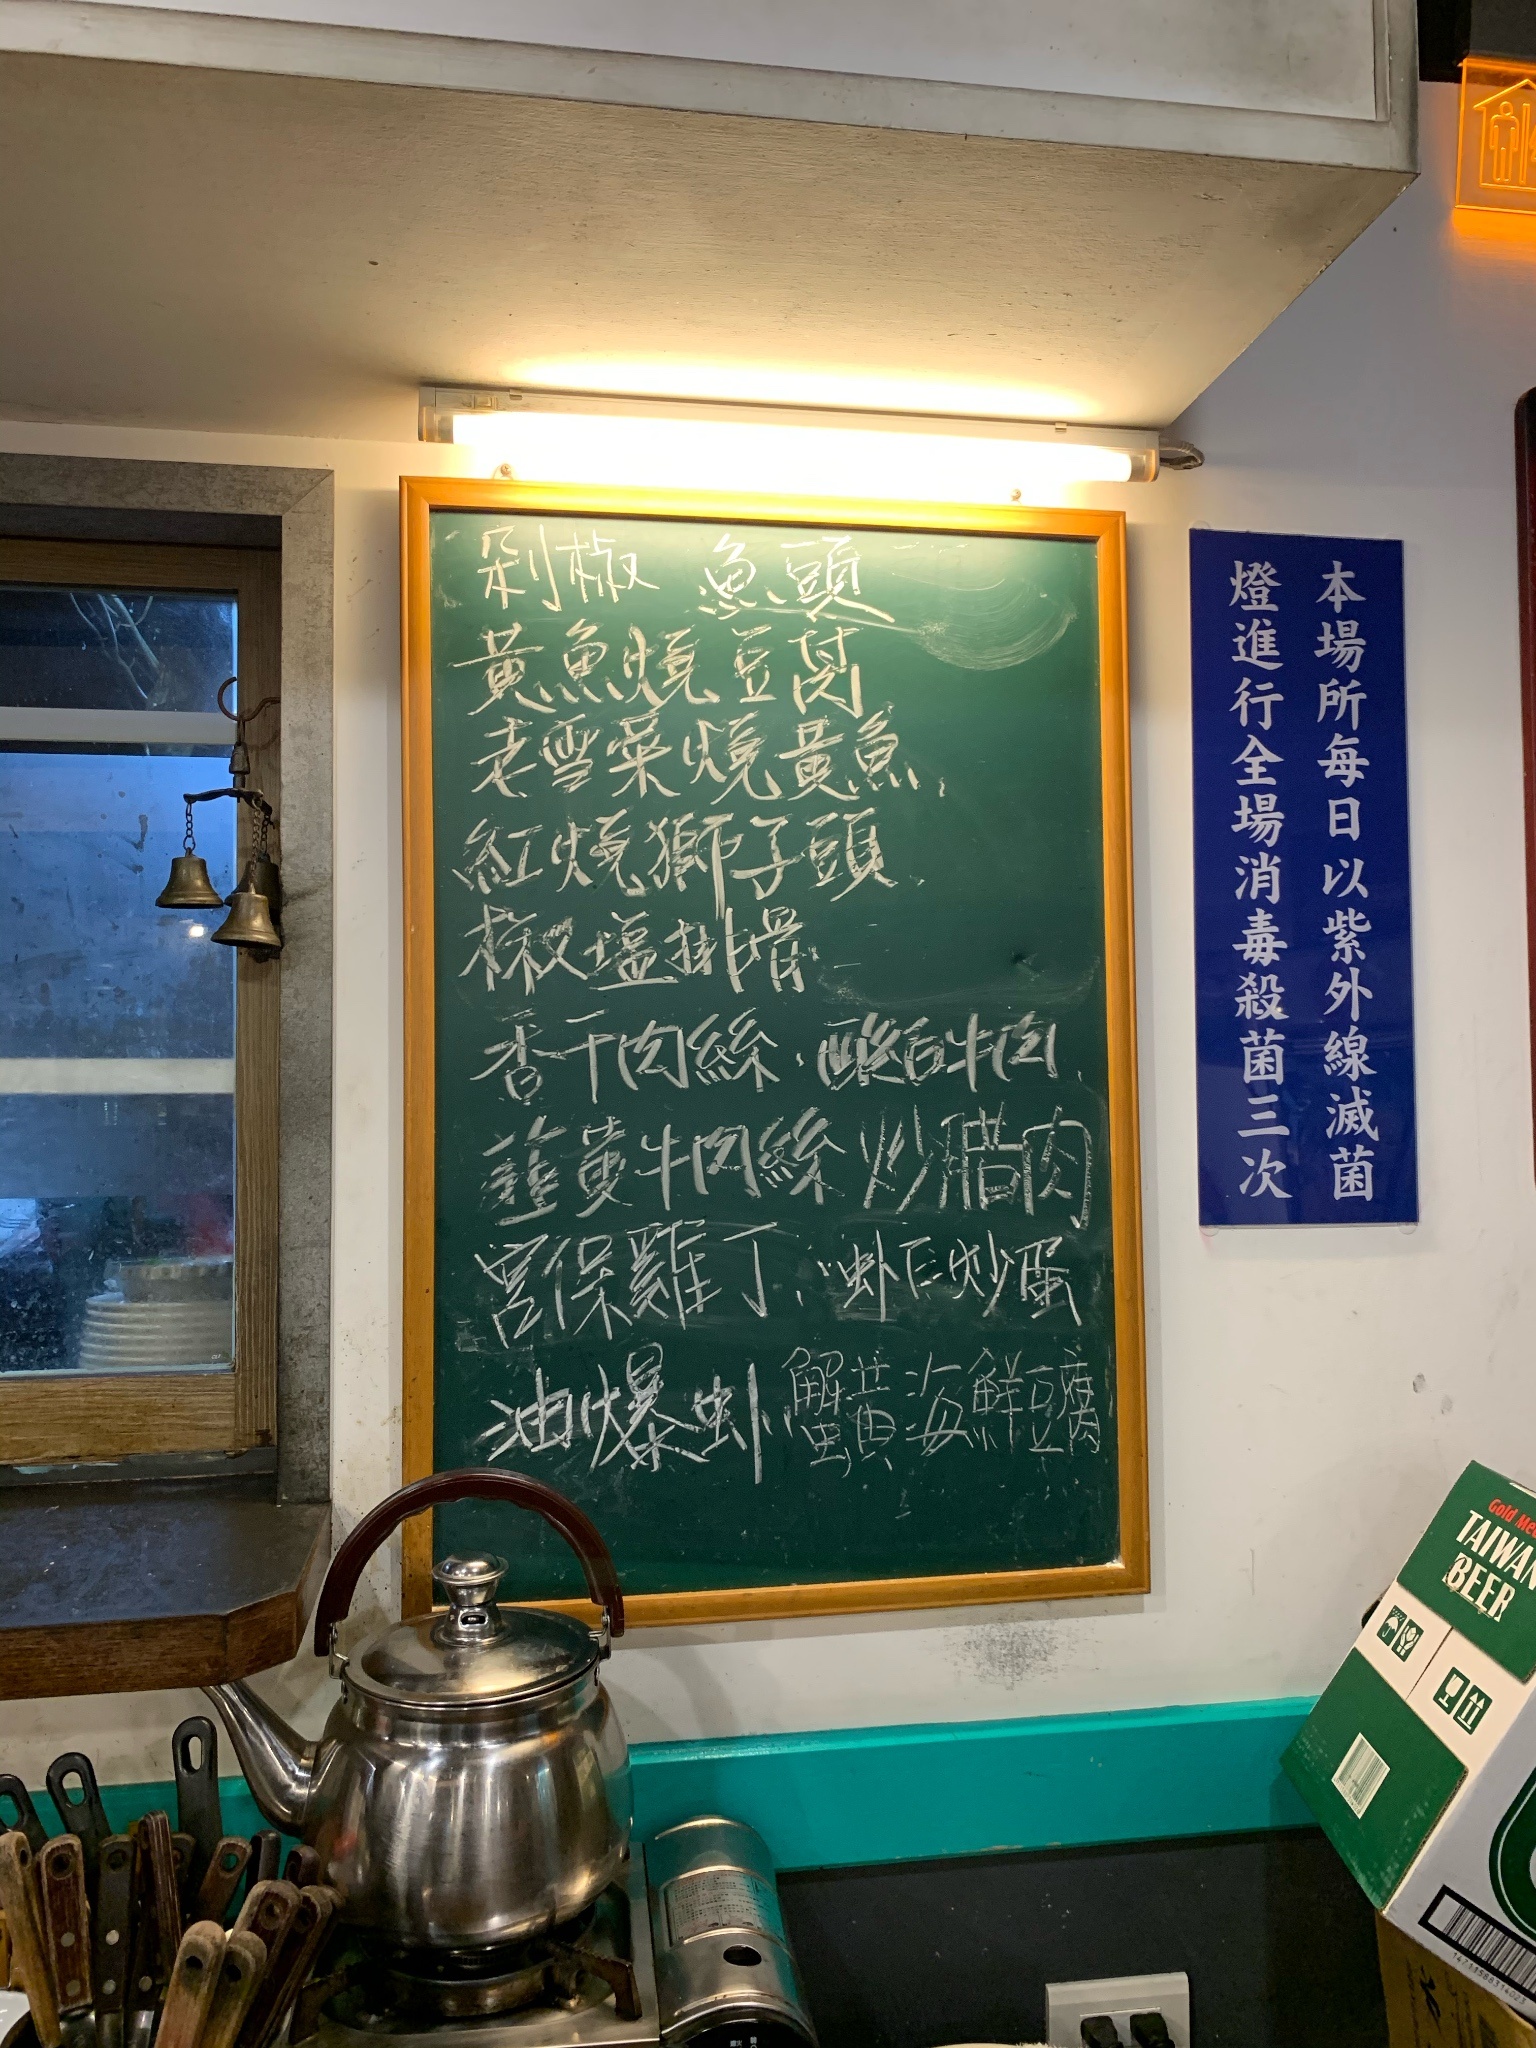 剁椒 魚頭
黃魚燒豆腐
老雪菜燒黃魚
紅燒獅子頭
椒塩排骨
香干肉絲、酸白牛肉
韮黃牛肉絲 炒腊肉
宮保雞丁、虾仁炒蛋
油爆虾 蟹黃海鮮豆腐
本場所每日以紫外線滅菌
燈進行全場消毒殺菌三次
Gold
TAIWAN
BEER
4711588314023